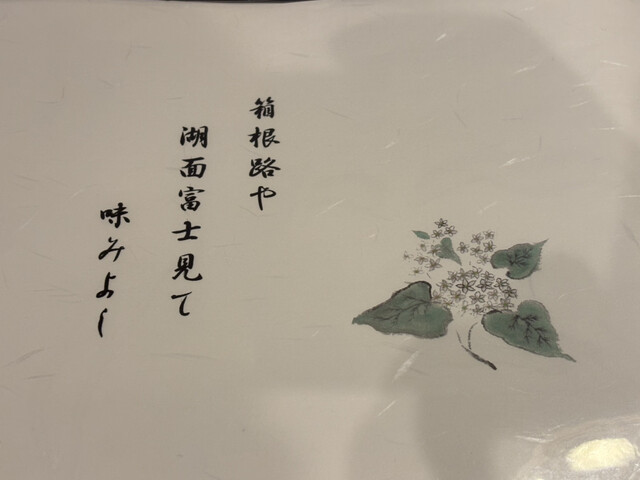 箱根路や
湖面富士見て
味みよし